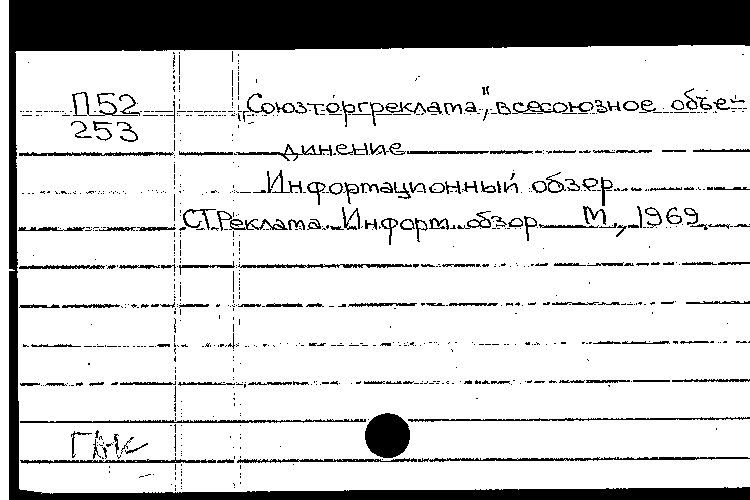 П52
253
„Союзторгреклама", всесоюзное объе-
динение
Информационный обзор
СТРеклама. Информ. обзор. М., 1969.